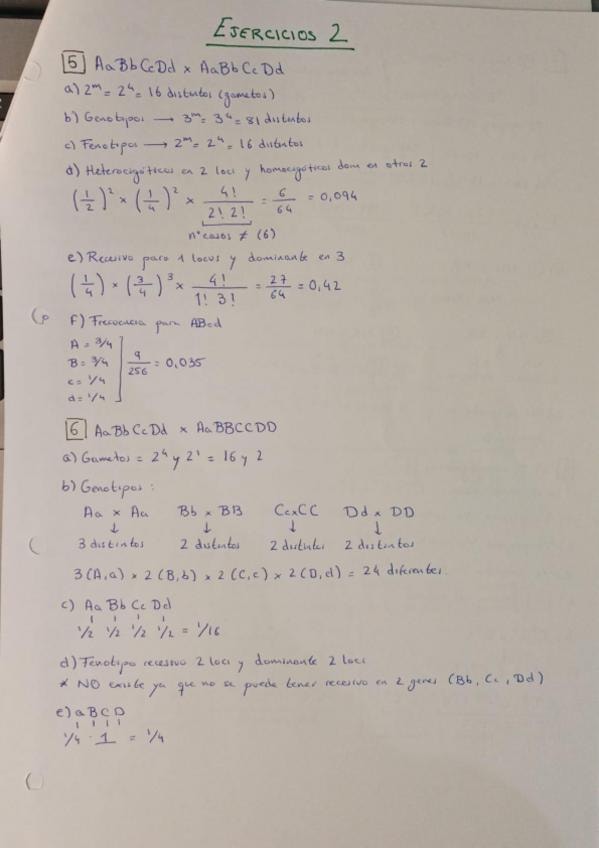 EJERCICIOS 2
5 AaBbCcDd × AaBbCcDd
a) 2ᵐ = 2⁴ = 16 distintos (gametos)
b) Genotipos → 3ᵐ = 3⁴ = 81 distintos
c) Fenotipos → 2ᵐ = 2⁴ = 16 distintos
d) Heterocigóticos en 2 loci y homocigóticos dom en otros 2
(1/2)² × (1/4)² × 4!/2! 2! = 6/64 = 0,094
nº casos ≠ (6)
e) Recesivo para 1 locus y dominante en 3
(1/4) × (3/4)³ × 4!/1! 3! = 27/64 = 0,42
F) Frecuencia para ABcd
A = 3/4
B = 3/4
c = 1/4
d = 1/4
9/256 = 0,035
6 AaBbCcDd × AaBBCCDD
a) Gametos = 2⁴ y 2¹ = 16 y 2
b) Genotipos :
Aa × Aa Bb × BB CcxCC Dd × DD
↓ ↓ ↓ ↓
3 distintos 2 distintos 2 distintos 2 distintos
3 (A,a) × 2 (B,b) × 2 (C,c) × 2 (D,d) = 24 diferentes.
c) Aa Bb Cc Dd
1/2 1/2 1/2 1/2 = 1/16
d) Fenotipo recesivo 2 loci y dominante 2 loci
* NO existe ya que no se puede tener recesivo en 2 genes (Bb, Cc, Dd)
e) a B C D
1/4 · 1 = 1/4